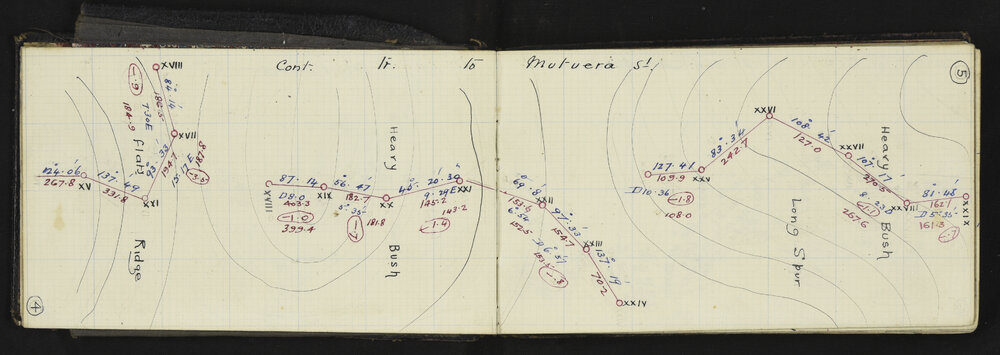 Cont. Tr. to Mutuera St.
4
5
XVIII
84° 14'
186.5
7.30 E
184.9
-.9
XVII
Flat
Ridge
93° 33'
194.7
187.8
124° 06'
267.8
XV
137° 49'
XVI
XVIII
87° 14'
D 8.0
403.3
-1.0
399.4
XIX
56° 47'
182.7
181.8
XX
Heavy
Bush
20' 30"
145.2
143.2
-1.4
XXI
69° 18'
153.5
XXII
97° 33'
154.7
D 6° 51'
-.8
XXIII
137° 19'
70.2
XXIV
127° 41'
109.9
D 10° 36'
-1.8
108.0
XXV
83° 34'
242.7
XXVI
108° 42'
127.0
XXVII
Heavy
Bush
107° 17'
270.5
267.6
-1.1
XXVIII
81° 48'
162.1
D 5° 35'
161.3
-.7
XXIX
Long Spur